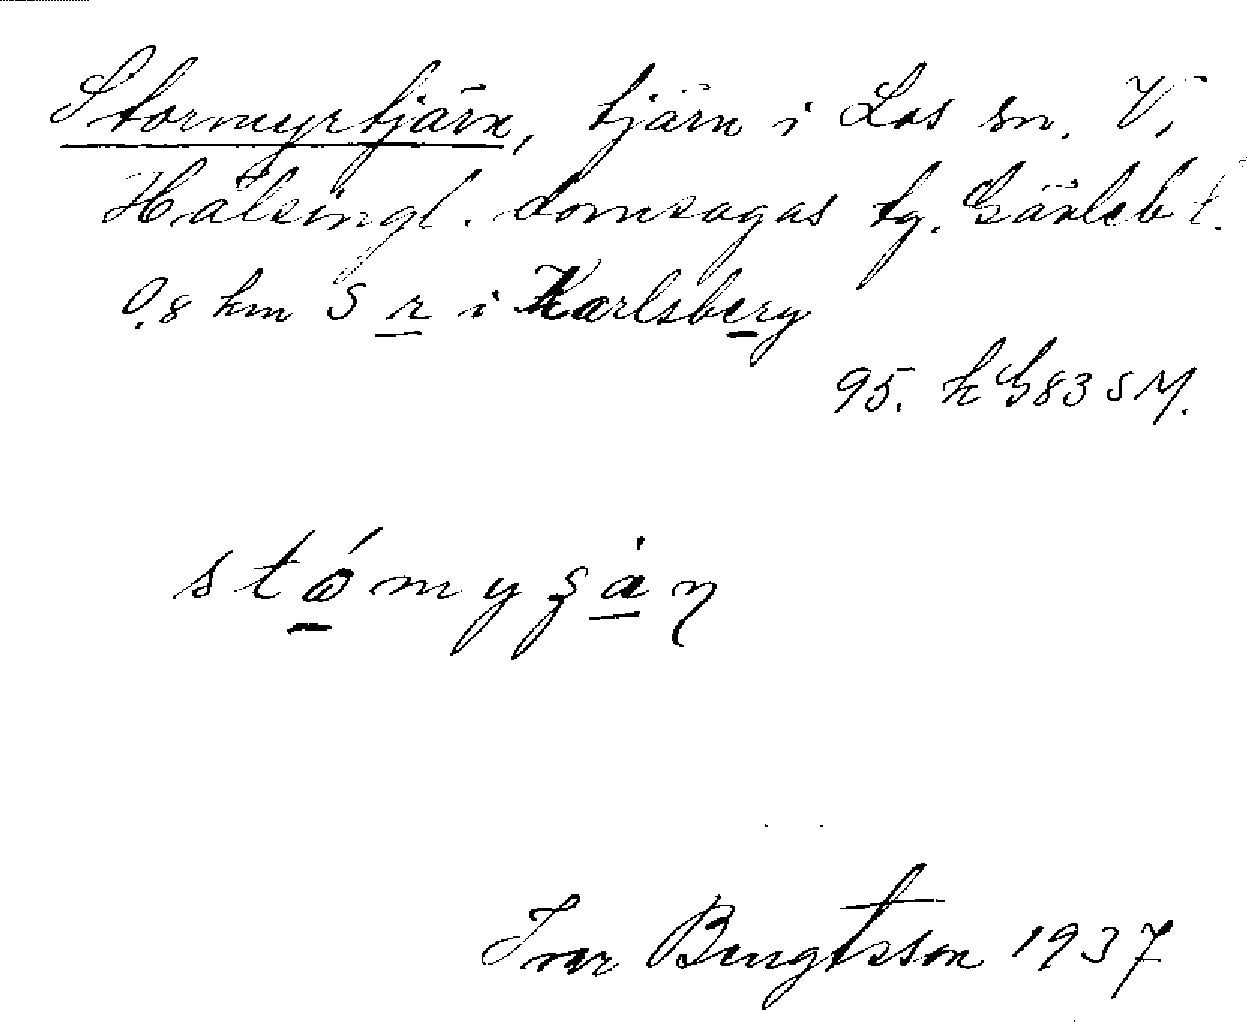 Stormyrtjärn, tjärn i Los sn. V.
Hälsingl. domsagas tg. Gävleb l.
0.8 km S r i Karlsberg
95. k G83 SM.
Ivar Bengtsson 1937